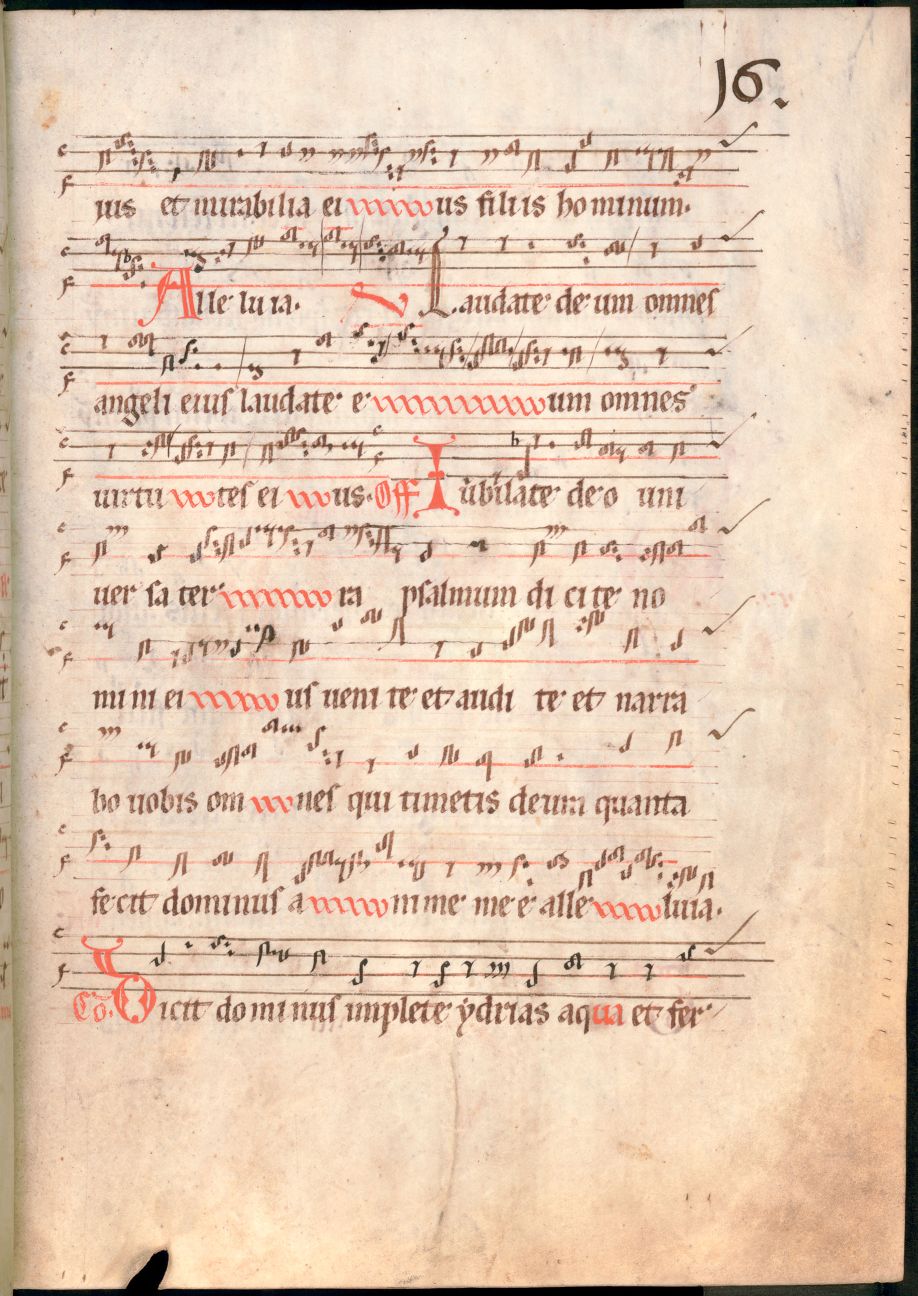 16.
ius et mirabilia ei us filiis hominum.
Alle lu ia. V Laudate de um omnes
angeli eius laudate e um omnes
uirtu tes ei us. Off Iubilate de o uni
uer sa ter ra psalmum di ci te no
mi ni ei us ueni te et audi te et narra
bo uobis om nes qui timetis deum quanta
fecit dominus a nime me e alle luia.
Co. Dicit do mi nus implete ydrias aqua et fer